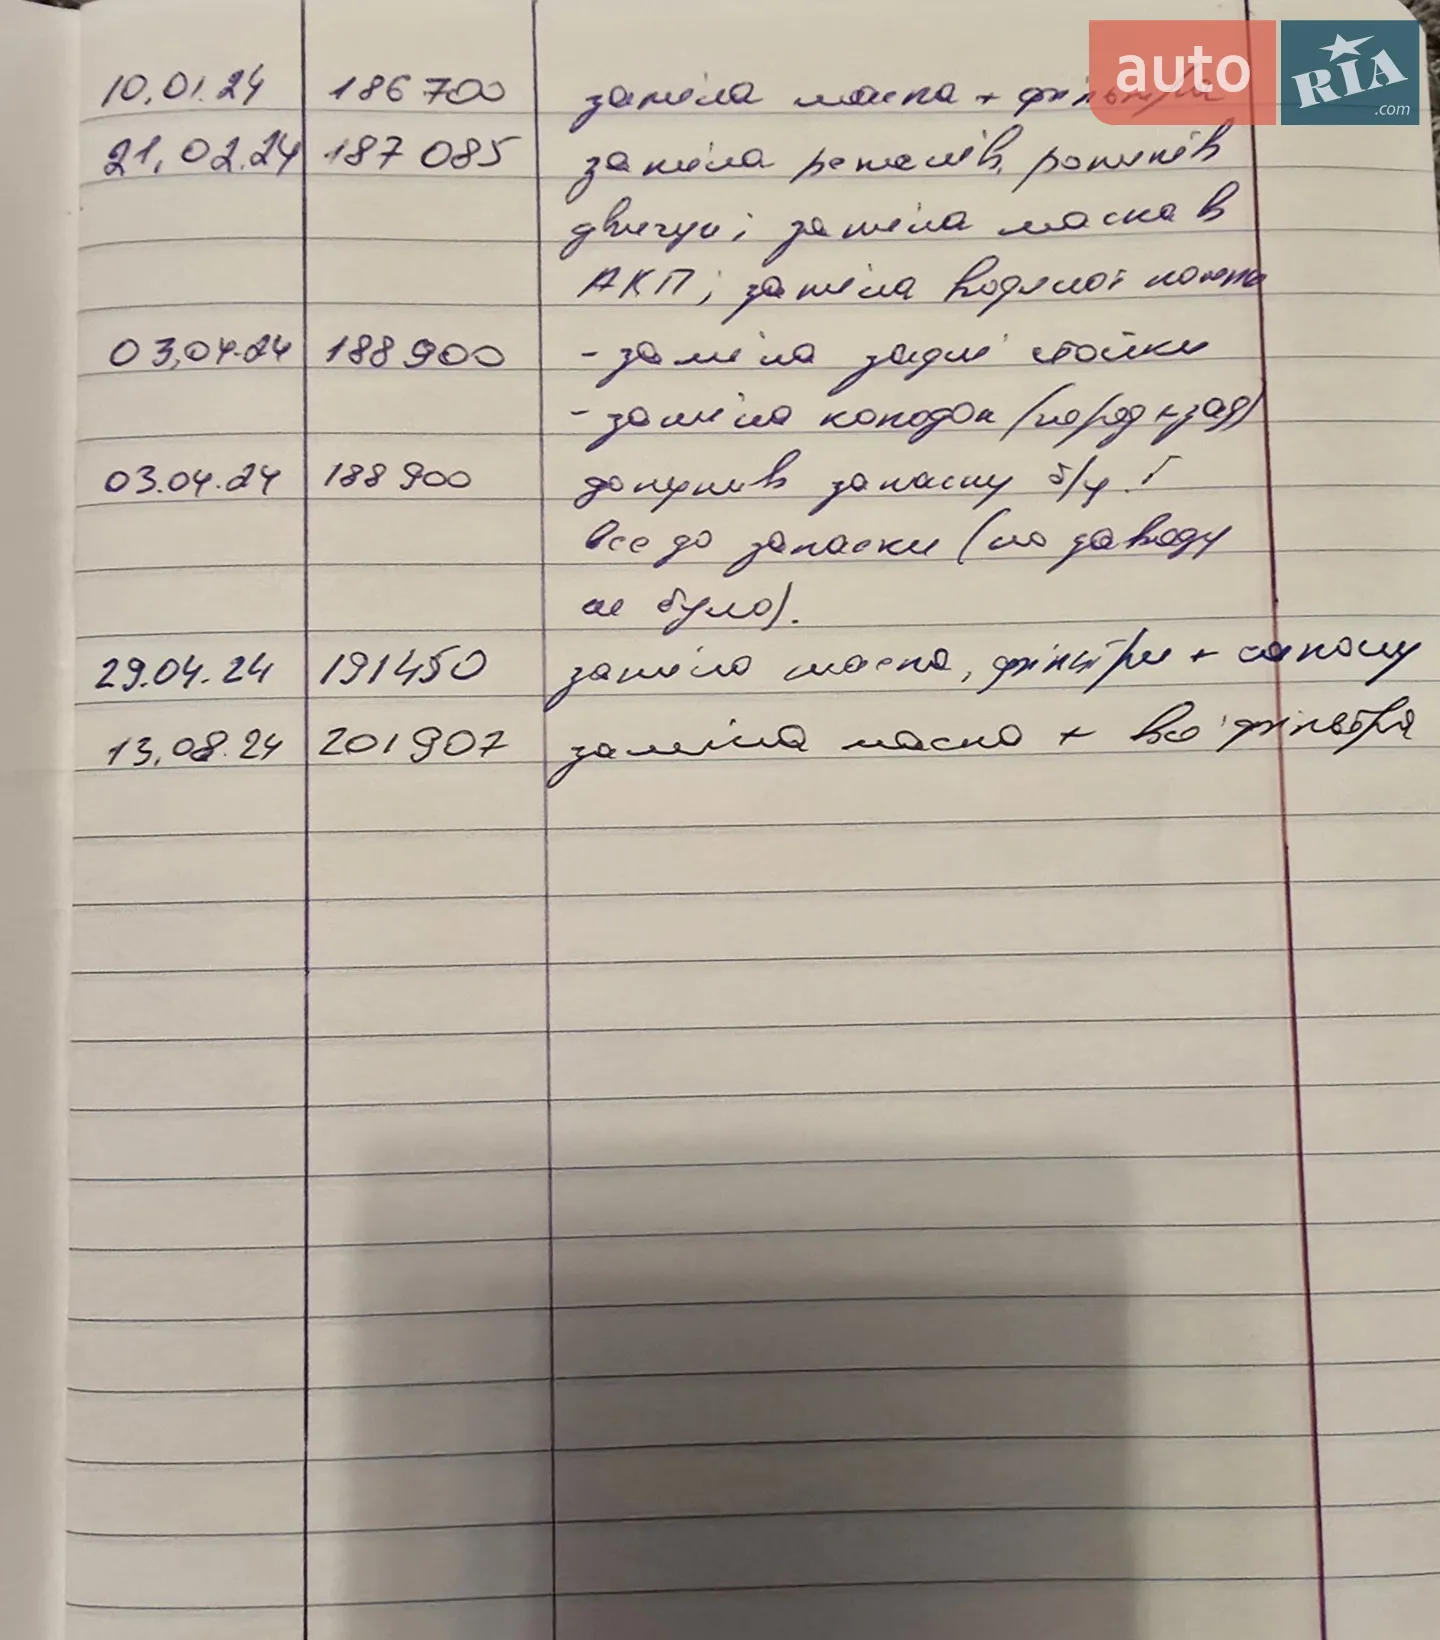 auto RIA .com
10.01.24 186700 заміна масла + фільтра
21.02.24 187085 заміна ременів, роликів
двигун; заміна масла в
АКП; заміна водяної помпи
03.04.24 188900 - заміна задні стойки
- заміна колодок (перед + зад)
03.04.24 188900 докупив запаску б/у і
все до запаски (по заводу
не було).
29.04.24 191450 заміна масла, фільтри + салону
13.08.24 201907 заміна масла + всі фільтра